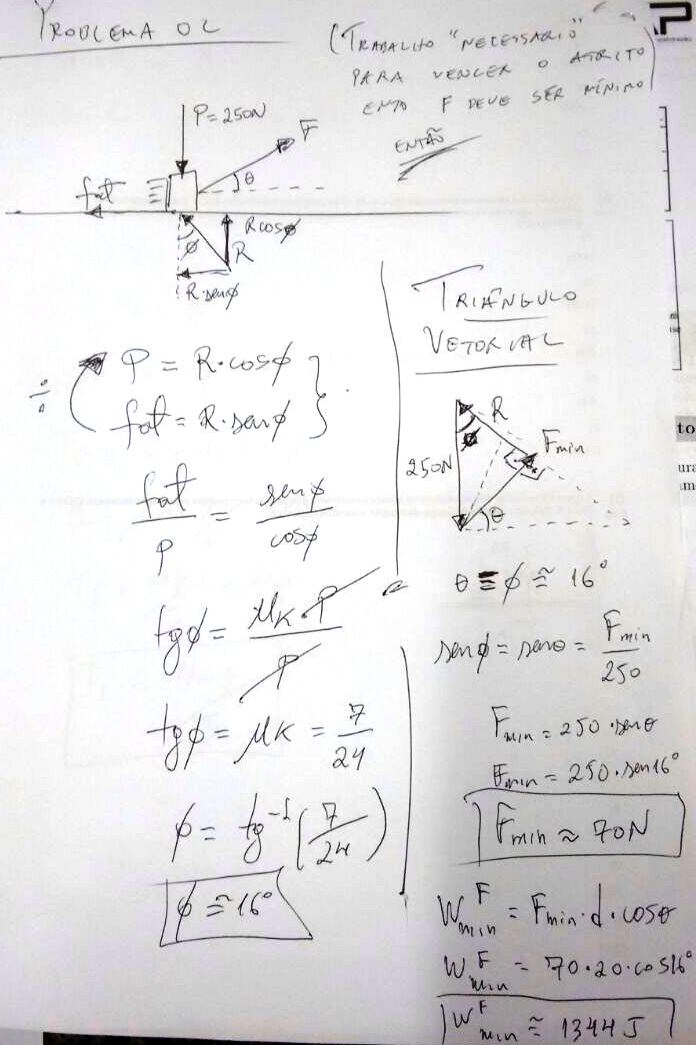 PROBLEMA 02
(TRABALHO "NECESSÁRIO"
PARA VENCER O ATRITO
ENTÃO F DEVE SER MÍNIMO)
ENTÃO
P=250N
F
θ
fat
R cosφ
φ
R
R senφ
P = R·cosφ
fat = R·senφ
÷
fat/P = senφ/cosφ
tgφ = μK P/P
tgφ = μK = 7/24
φ = tg⁻¹(7/24)
φ ≅ 16°
TRIÂNGULO
VETORIAL
R
φ
Fmin
250N
θ
θ = φ ≅ 16°
senφ = senθ = Fmin/250
Fmin = 250·senθ
Fmin = 250·sen16°
Fmin ≈ 70N
W^F min = Fmin·d·cosθ
W^F min = 70·20·cos16°
W^F min ≅ 1344 J
P
to
ura